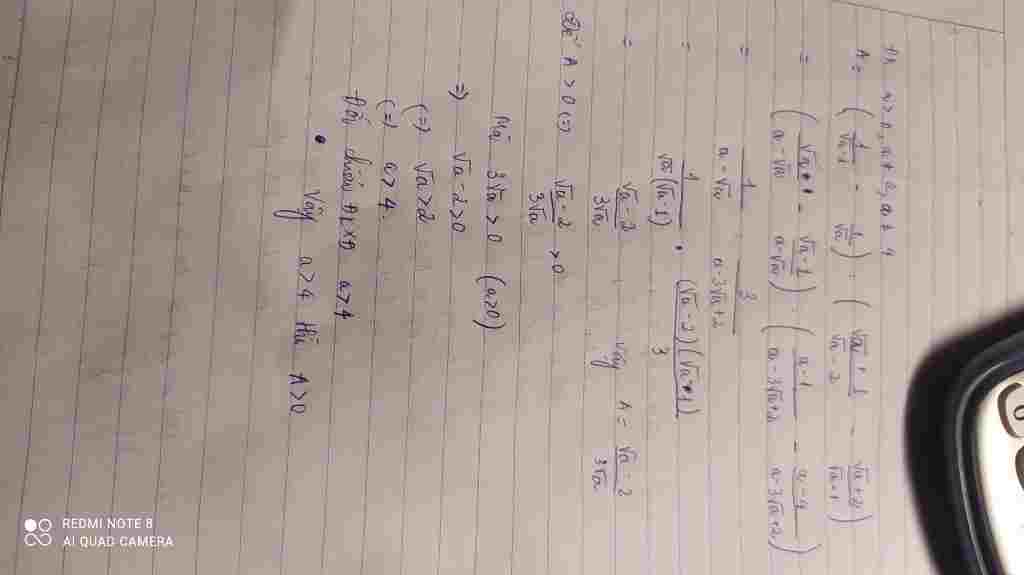 ĐK a > 0, a ≠ 1, a ≠ 4
A = (1/(√a-1) - 1/√a) : ((√a+1)/(√a-2) - (√a+2)/(√a-1))
= ((√a - √a-1)/(a-√a)) : ((a-1)/(a-3√a+2) - (a-4)/(a-3√a+2))
= 1/(a-√a) : 3/(a-3√a+2)
= 1/(√a(√a-1)) . ((√a-2)(√a-1))/3
= (√a-2)/(3√a) Vậy A = (√a-2)/(3√a)
Để A > 0 (=) (√a-2)/(3√a) > 0
Mà 3√a > 0 (a>0)
=> √a-2>0
(=) √a>2
(=) a>4
Đối chiếu ĐKXĐ a>4
Vậy a>4 thì A>0
REDMI NOTE 8
AI QUAD CAMERA